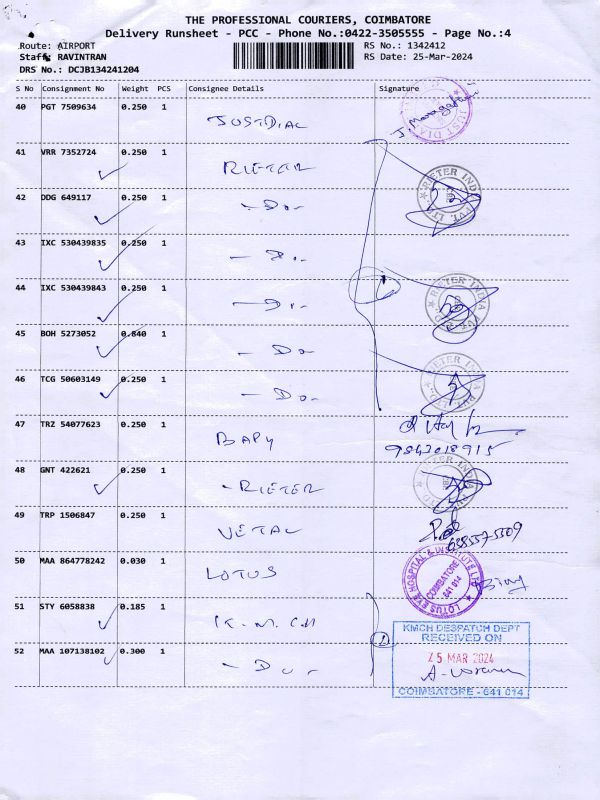 THE PROFESSIONAL COURIERS, COIMBATORE
Delivery Runsheet - PCC - Phone No.:0422-3505555 - Page No.:4
Route: AIRPORT RS No.: 1342412
Staff: RAVINTRAN RS Date: 25-Mar-2024
DRS No.: DCJB134241204
S No Consignment No Weight PCS Consignee Details Signature
40 PGT 7509634 0.250 1 JUSTDIAL
JUST DIA
41 VRR 7352724 0.250 1 RIETER
42 DDG 649117 0.250 1 - Do -
RIETER INDIA PVT. LTD.
43 IXC 530439835 0.250 1 - Do -
44 IXC 530439843 0.250 1 - Do -
RIETER INDIA PVT
45 BOH 5273052 0.840 1 - Do
46 TCG 50603149 0.250 1 - Do -
RIETER INDIA PVT. LTD
47 TRZ 54077623 0.250 1 BAPY
9842018915
48 GNT 422621 0.250 1 - RIETER
RIETER INDIA
49 TRP 1506847 0.250 1 VETAL
50 MAA 864778242 0.030 1 LOTUS
LOTUS EYE HOSPITAL & INSTITUTE LTD
COIMBATORE
641 014
51 STY 6058838 0.185 1 K. M. C H
52 MAA 107138102 0.300 1 - Do -
KMCH DESPATCH DEPT
RECEIVED ON
25 MAR 2024
COIMBATORE - 641 014